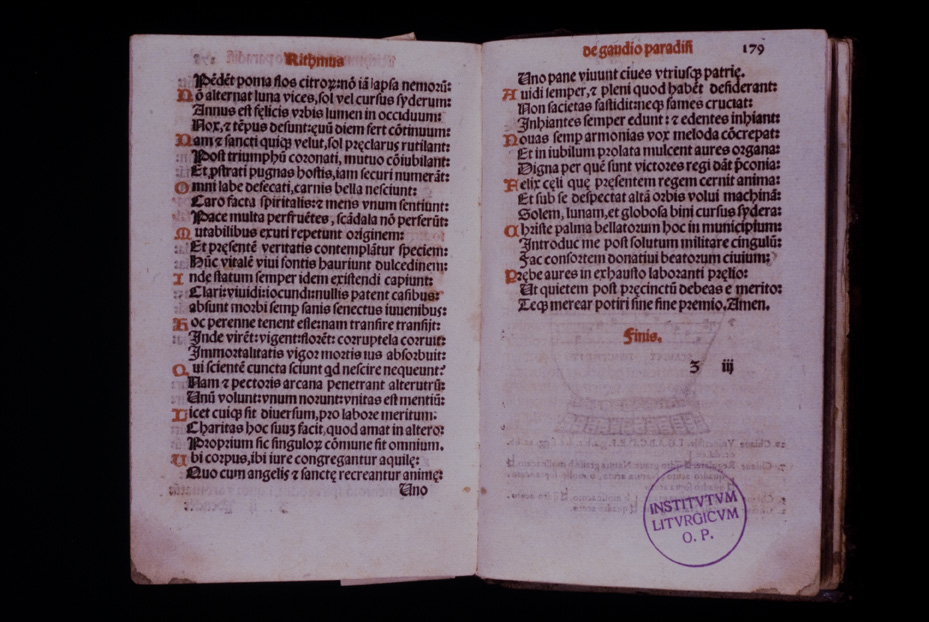 Rithmus
Pēdēt poma flos citroꝝ: nō iā lapsa nemorū:
Nō alternat luna vices, sol vel cursus syderum:
Annus est fęlicis vrbis lumen in occiduum:
Nox, ⁊ tēpus desunt: ęuū diem fert cōtinuum:
Nam ⁊ sancti quiqꝫ velut, sol pręclarus rutilant:
Post triumphū coronati, mutuo cōiubilant:
Et ꝓstrati pugnas hostis, iam securi numerāt:
Omni labe defecati, carnis bella nesciunt:
Caro facta spiritalis: ⁊ mens vnum sentiunt:
Pace multa perfruētes, scādala nō perferūt:
Mutabilibus exuti repetunt originem:
Et pręsentē veritatis contemplātur speciem:
Hūc vitalē viui fontis hauriunt dulcedinem:
Inde statum semper idem existendi capiunt:
Clari: viuidi: iocundi: nullis patent casibus:
absunt morbi semꝑ sanis senectus iuuenibus:
Hoc perenne tenent esse: nam transire transijt:
Inde virēt: vigent: florēt: corruptela corruit:
Immortalitatis vigor mortis ius absorbuit:
Qui scientē cuncta sciunt qd nescire nequeunt?
Nam ⁊ pectoris arcana penetrant alterutrū:
Unū volunt: vnum norunt: vnitas est mentiū:
Licet cuiqꝫ sit diuersum, pro labore meritum:
Charitas hoc suuꝫ facit, quod amat in altero:
Proprium sic singuloꝝ cōmune fit omnium.
Ubi corpus, ibi iure congregantur aquilę:
Quo cum angelis ⁊ sanctę recreantur animę:
Uno
de gaudio paradisi 179
Uno pane viuunt ciues vtriusqꝫ patrię.
Auidi semper, ⁊ pleni quod habēt desiderant:
Non sacietas fastidit: neqꝫ fames cruciat:
Inhiantes semper edunt: ⁊ edentes inhiant:
Nouas semꝑ armonias vox meloda cōcrepat:
Et in iubilum prolata mulcent aures organa:
Digna per quē sunt victores regi dāt p̄conia:
Felix cęli quę pręsentem regem cernit anima:
Et sub se despectat altā orbis volui machinā:
Solem, lunam, et globosa bini cursus sydera:
Christe palma bellatorum hoc in municipium:
Introduc me post solutum militare cingulū:
Fac consortem donatiui beatorum ciuium:
Prębe aures in exhausto laboranti pręlio:
Ut quietem post pręcinctū debeas e merito:
Teqꝫ merear potiri sine fine premio. Amen.
Finis.
ʒ iij
INSTITVTVM
LITVRGICVM
O. P.